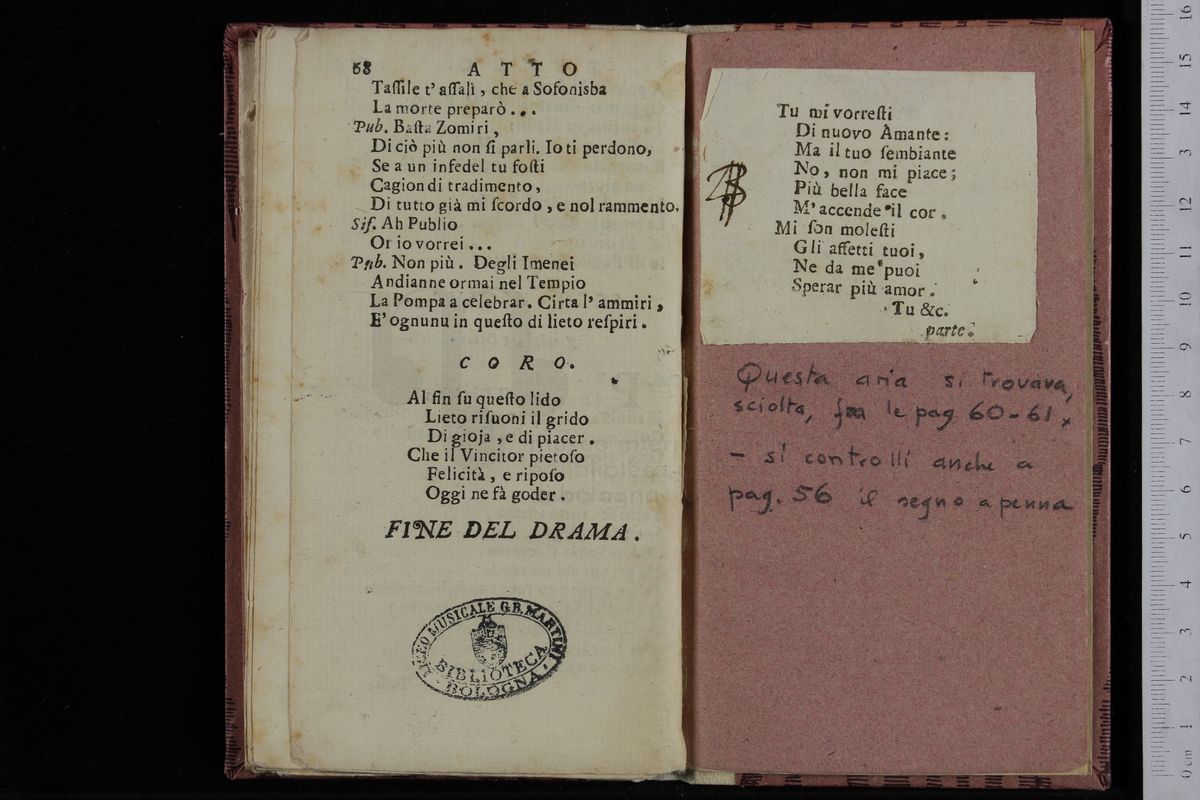 68 ATTO
Taſſile t' aſſalì, che a Sofonisba
La morte preparò...
Pub. Baſta Zomiri,
Di ciò più non ſi parli. Io ti perdono,
Se a un infedel tu foſti
Cagion di tradimento,
Di tutto già mi ſcordo, e nol rammento.
Sif. Ah Publio
Or io vorrei...
Pub. Non più. Degli Imenei
Andianne ormai nel Tempio
La Pompa a celebrar. Cirta l' ammiri,
E' ognunu in queſto di lieto reſpiri.
CORO.
Al fin ſu queſto lido
Lieto riſuoni il grido
Di gioja, e di piacer.
Che il Vincitor pietoſo
Felicità, e ripoſo
Oggi ne fà goder.
FINE DEL DRAMA.
LICEO MUSICALE G.B. MARTINI
BIBLIOTECA
BOLOGNA
Tu mi vorreſti
Di nuovo Amante:
Ma il tuo ſembiante
No, non mi piace;
Più bella face
M' accende il cor.
Mi ſon moleſti
Gli affetti tuoi,
Ne da me puoi
Sperar più amor.
Tu &c.
parte.
Questa aria si trovava,
sciolta, fra le pag 60-61,
- si controlli anche a
pag. 56 il segno a penna
0 cm 1 2 3 4 5 6 7 8 9 10 11 12 13 14 15 16